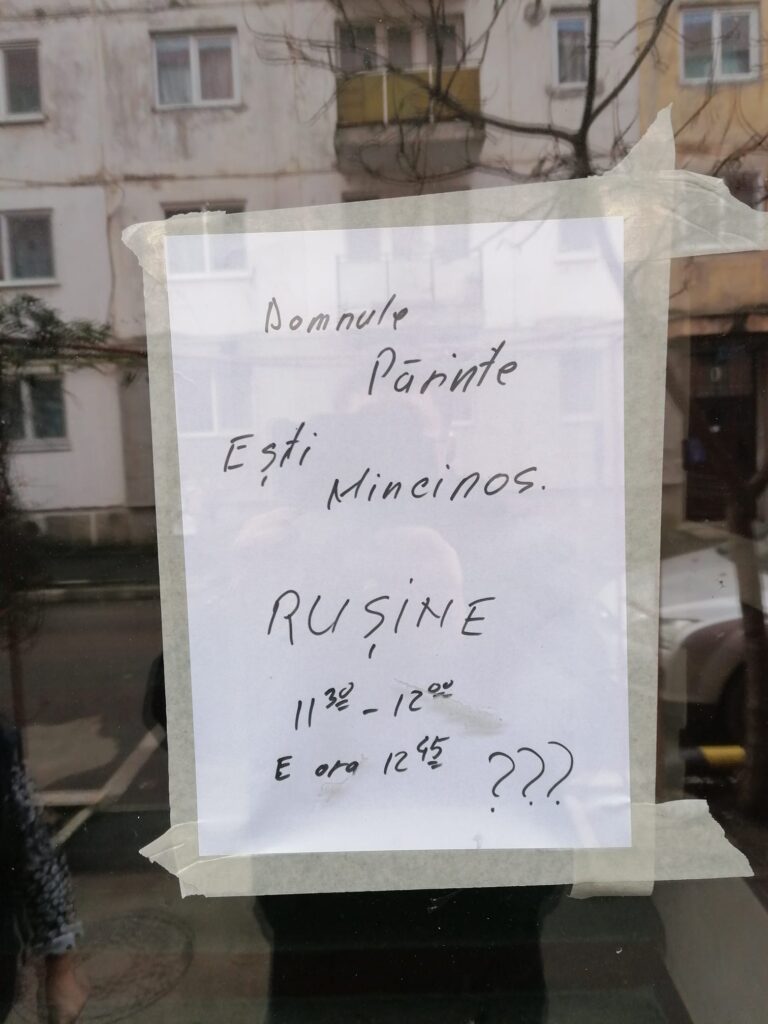 Domnule
Părinte
Ești
Mincinos.
RUȘINE
11³⁰ - 12⁰⁰
E ora 12⁴⁵ ???